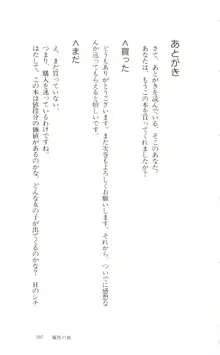 あとがき
さて、あとがきを読んでいる、そこのあなた。
あなたは、もうこの本を買ってくれましたか？
＜買った
どうもありがとうございます。また次巻もよろしくお願いします。ついでに感想な
んか送ってもらえると嬉しいです。
＜まだ
え、まだ買っていない。
つまり、購入を迷っている。
はたして、この本は値段分の価値があるのか、どんな女の子が出てくるのか？ Hのシチ